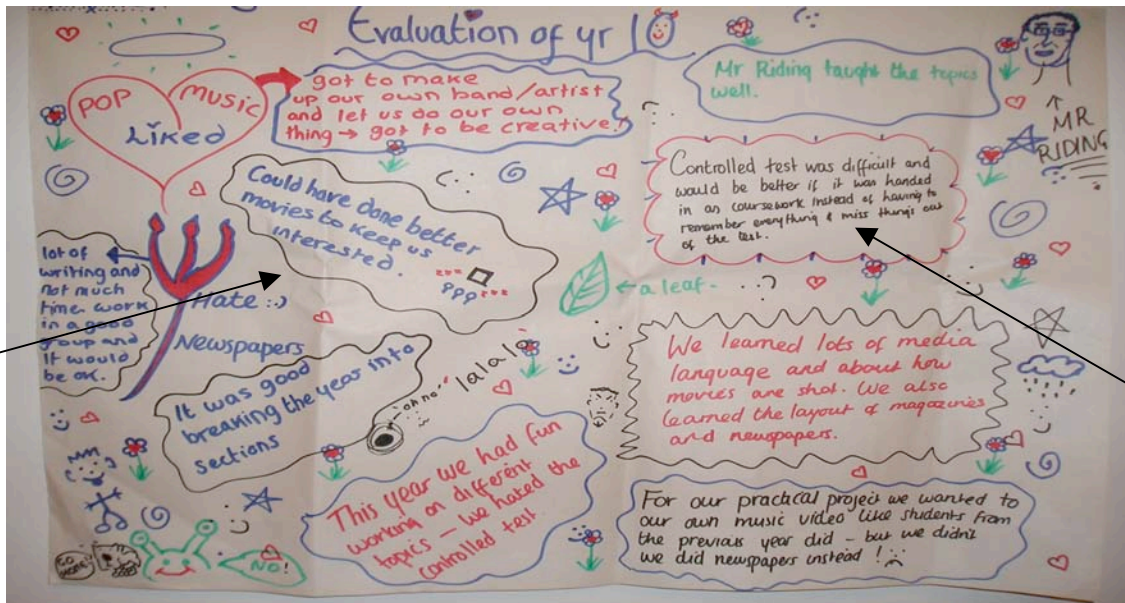 Evaluation of yr 10
POP MUSIC
Liked
got to make
up our own band/artist
and let us do our own
thing → got to be creative!
Mr Riding taught the topics
well.
↑
MR
RIDING
Could have done better
movies to keep us
interested.
Controlled test was difficult and
would be better if it was handed
in as coursework instead of having to
remember everything & miss things out
of the test.
lot of
writing and
not much
time. work
in a good
group and
it would
be ok.
Hate :-)
Newspapers
← a leaf.
It was good
breaking the year into
sections
oh no!
lalala
We learned lots of media
language and about how
movies are shot. We also
learned the layout of magazines
and newspapers.
This year we had fun
working on different
topics – we hated the
controlled test
For our practical project we wanted to
our own music video like students from
the previous year did – but we didn't
we did newspapers instead !
GO
NO!